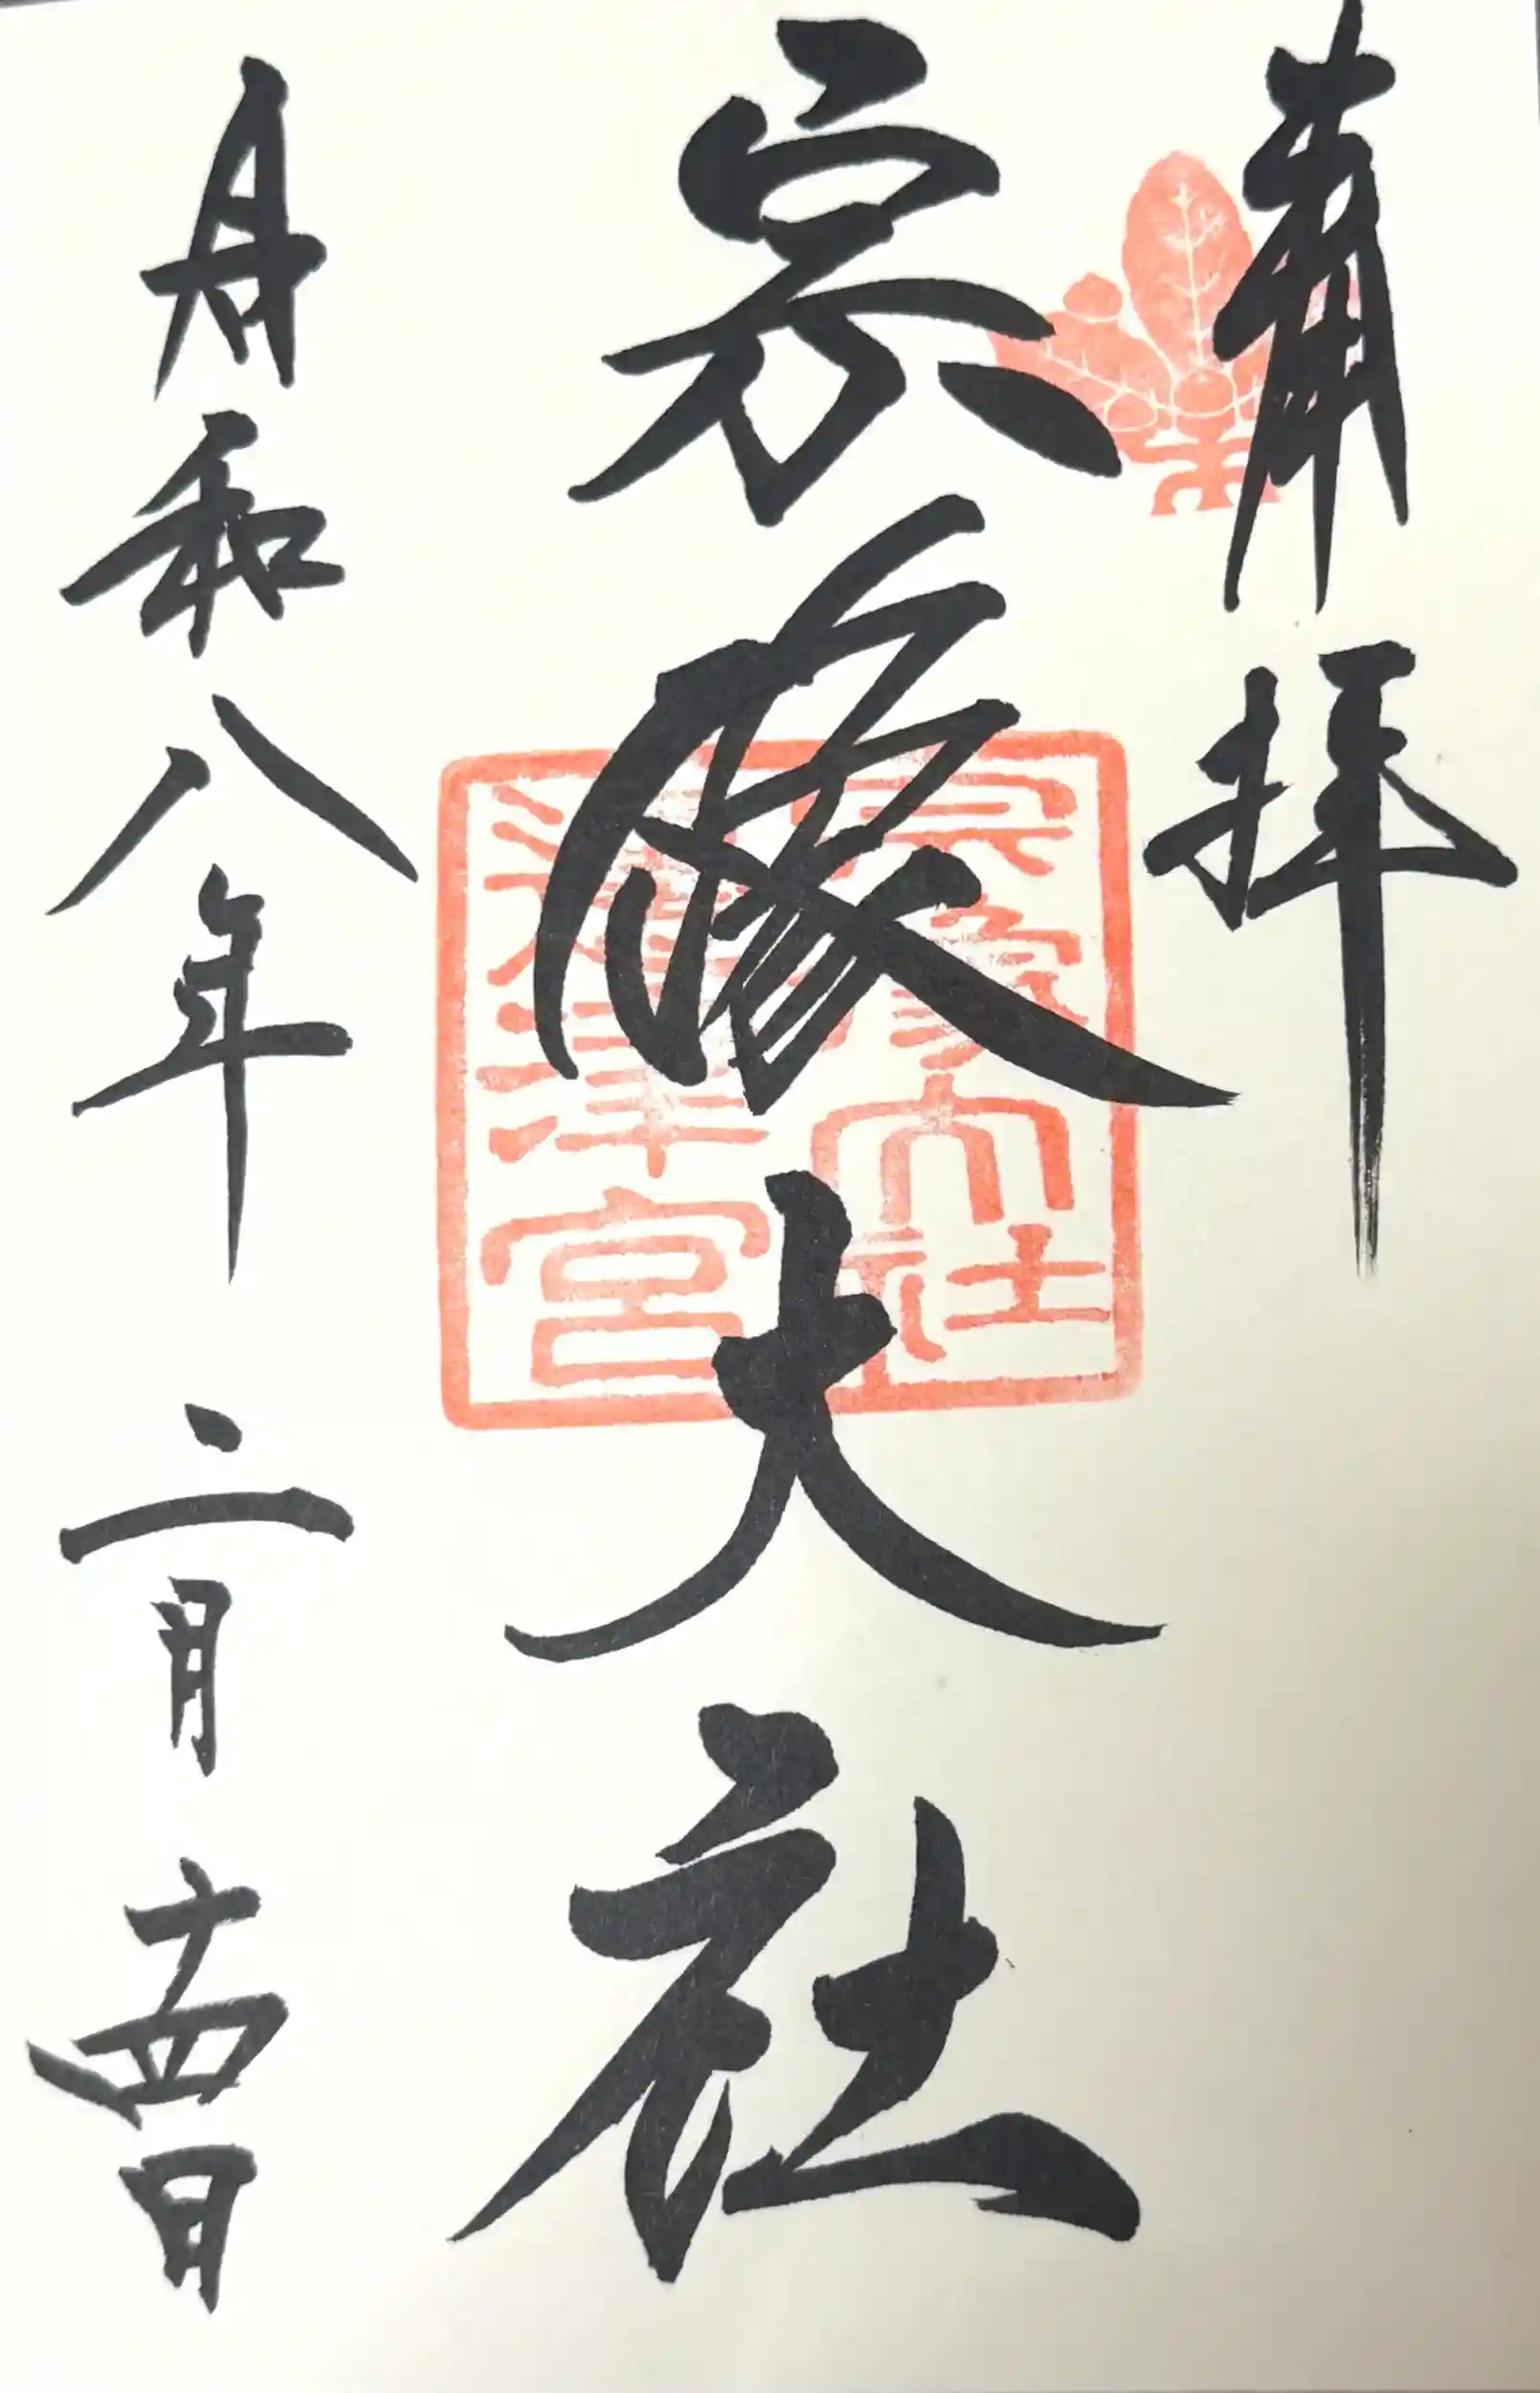 奉拝
宗像大社
宗像大社
邊津宮
令和八年二月十四日